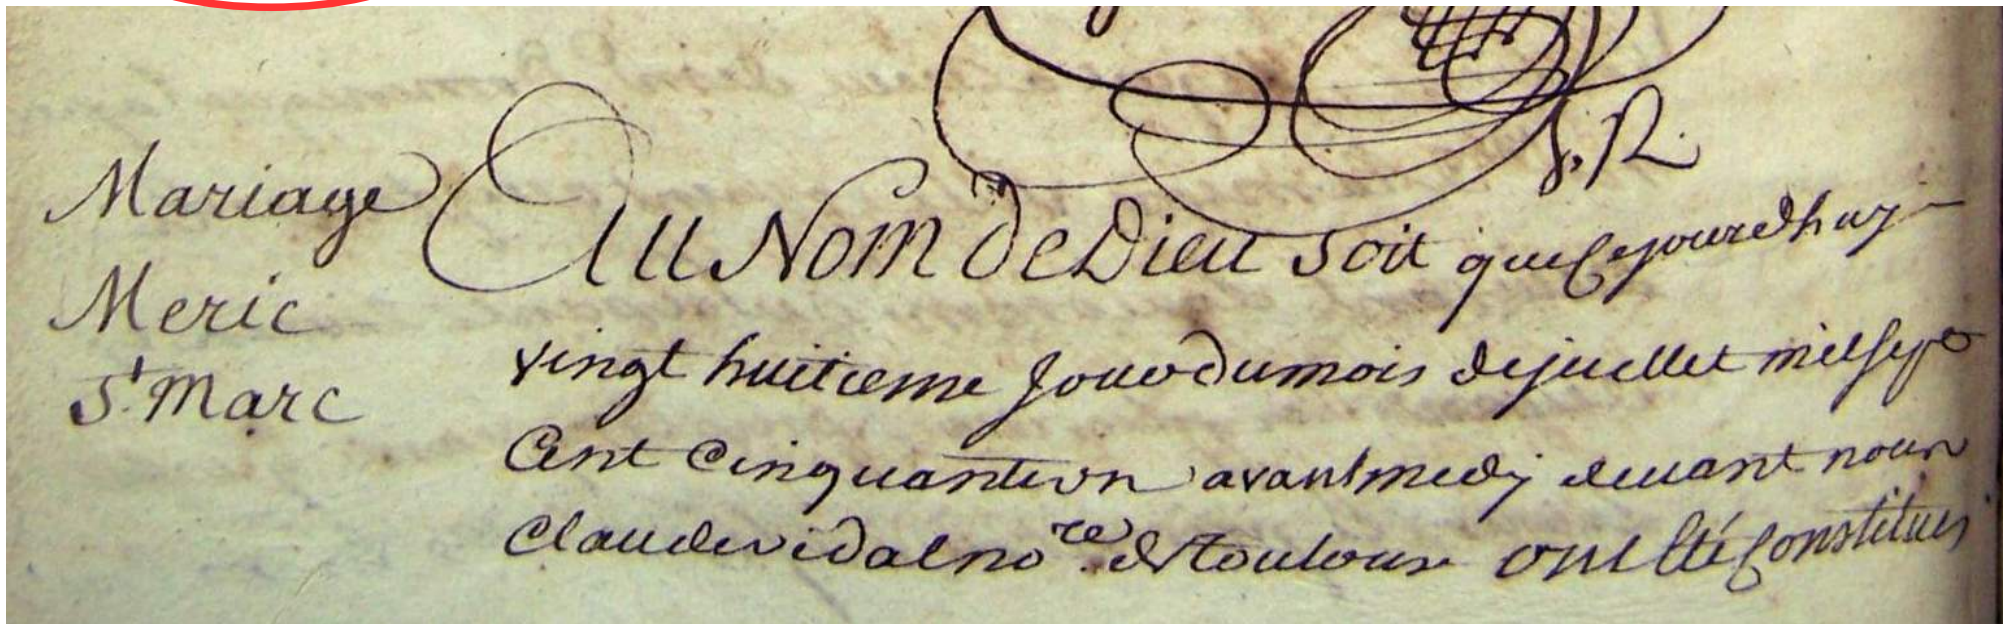 Mariage
Meric
St Marc
Au Nom de Dieu soit que cejourdhuy
vingt huitieme Jour du mois de juillet mil sept
Cent Cinquante un avant midy devant nous
Claude vidal nore de Toulouse ont Eté Constitues